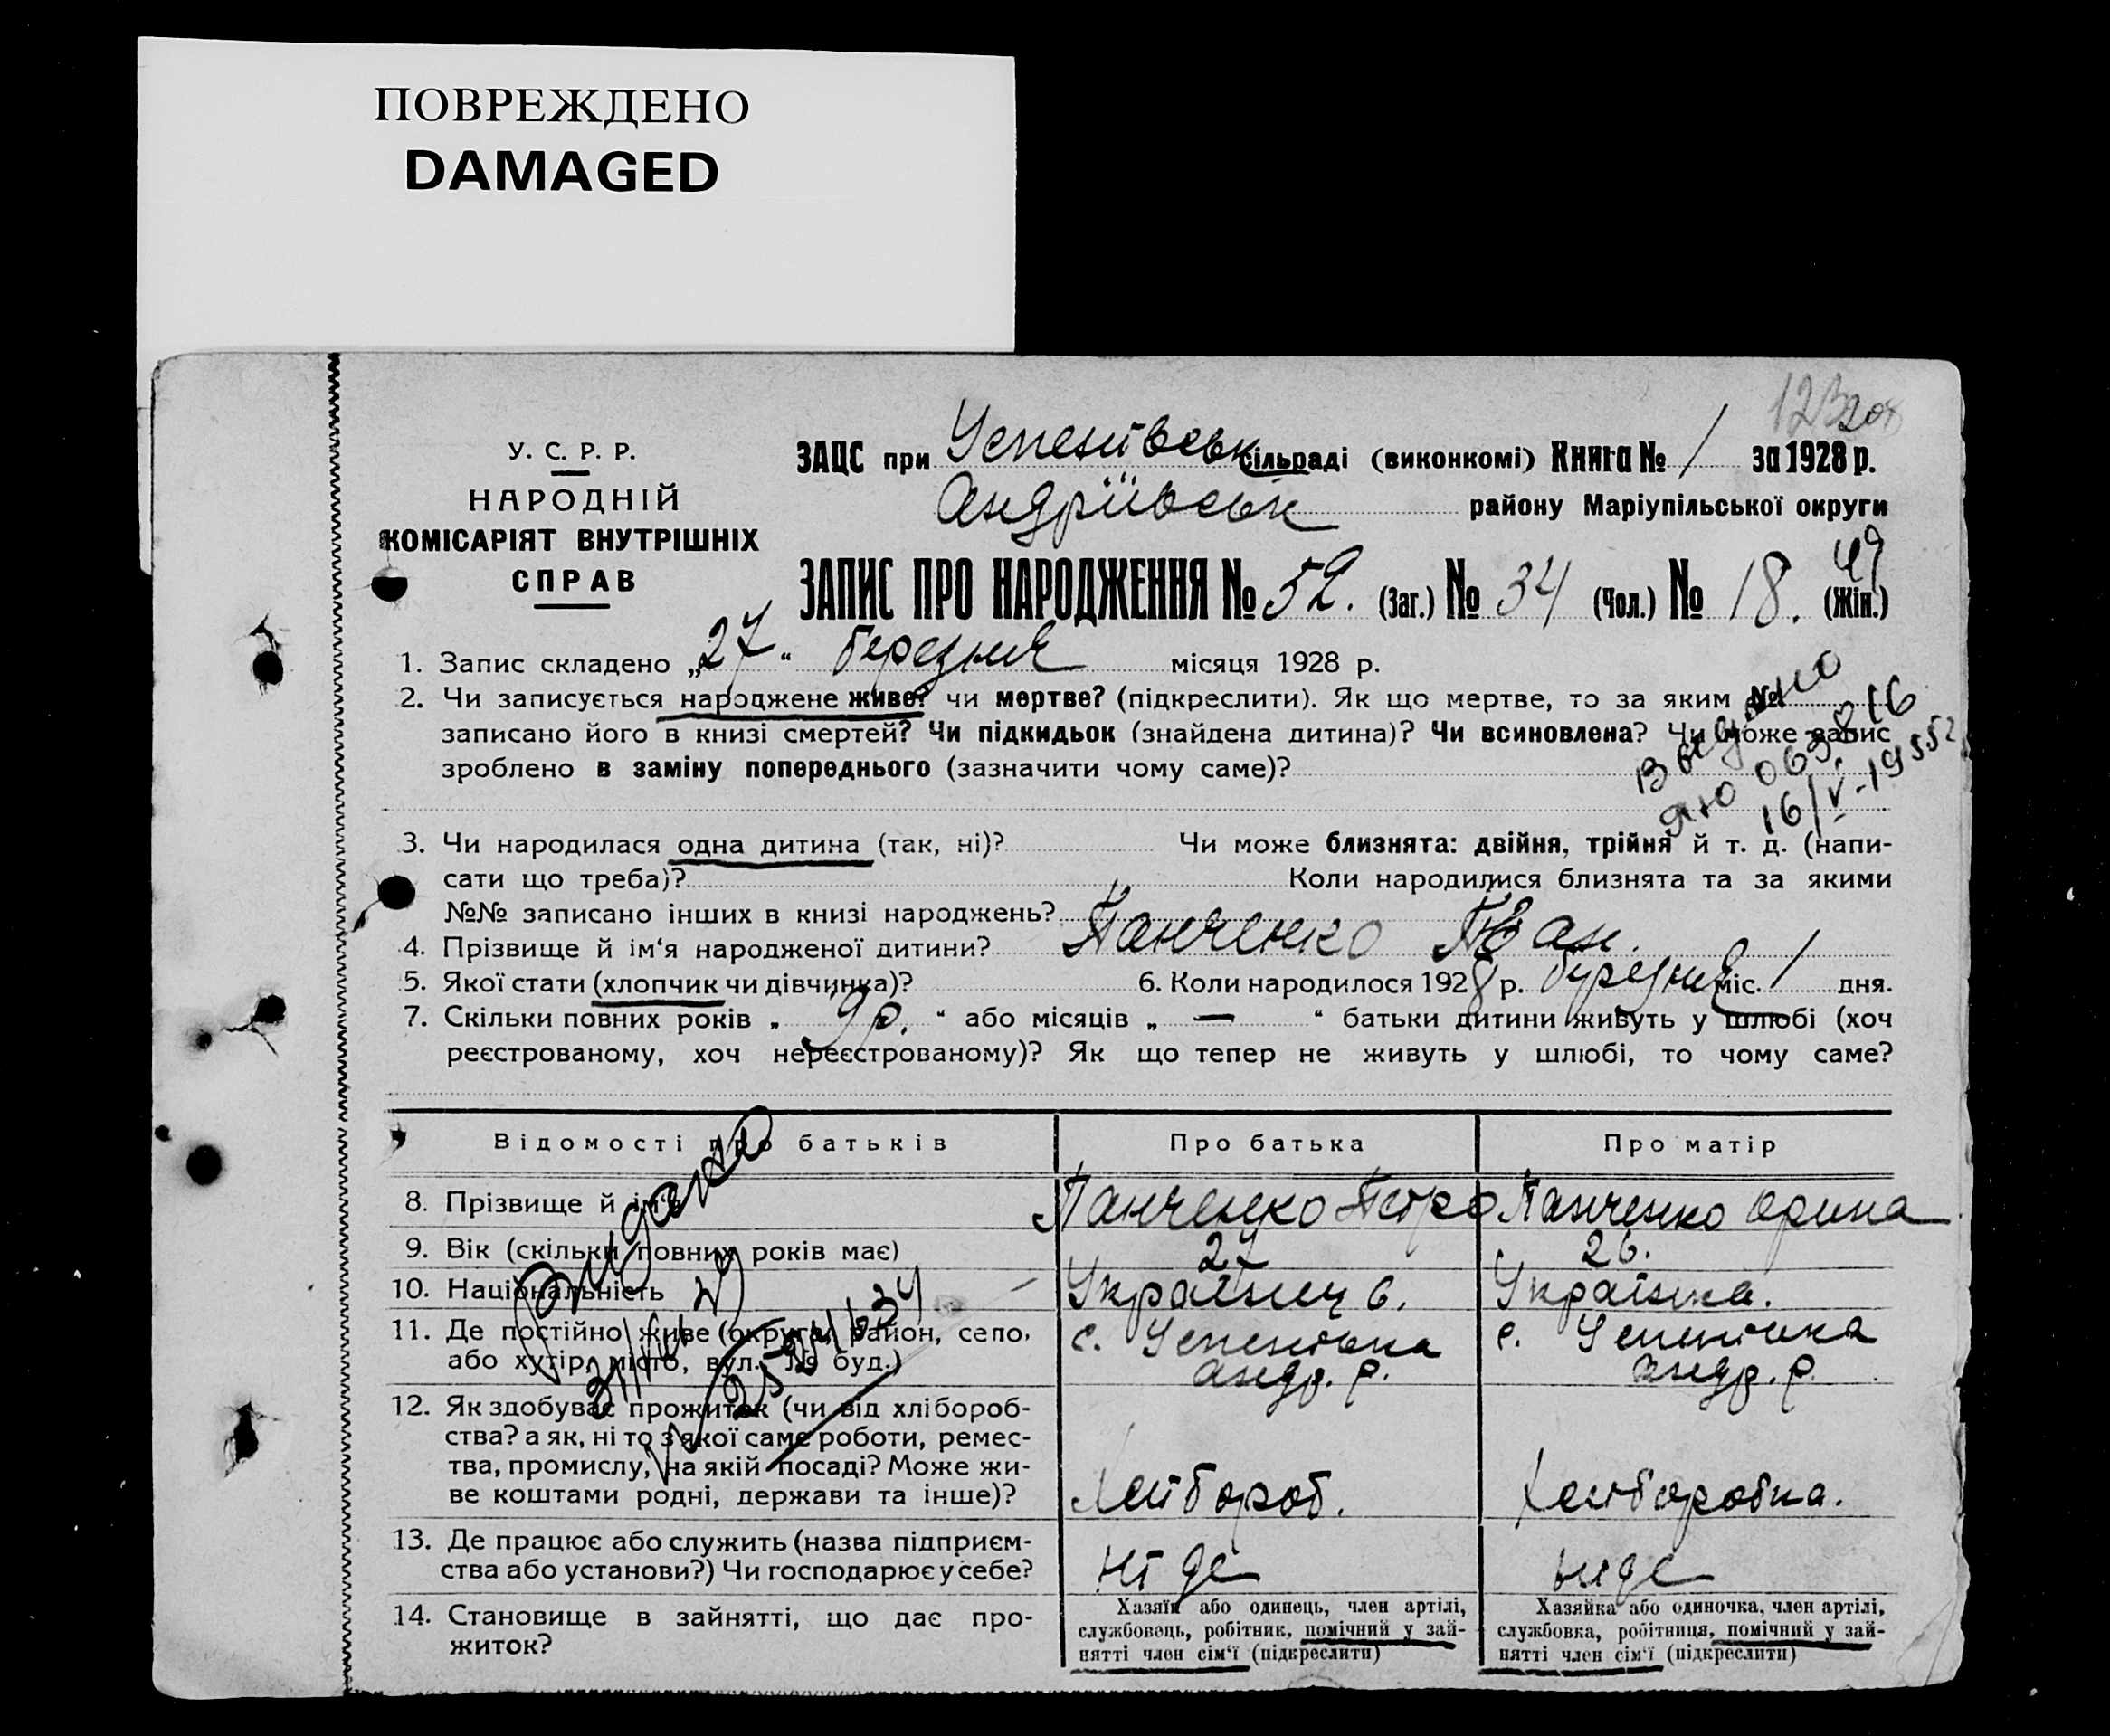 ПОВРЕЖДЕНО
DAMAGED
У. С. Р. Р.
НАРОДНІЙ
КОМІСАРІЯТ ВНУТРІШНІХ
СПРАВ
ЗАЦС при Успенівськ сільраді (виконкомі) Книга № 1 за 1928 р.
Андріївськ району Маріупільської округи
ЗАПИС ПРО НАРОДЖЕННЯ № 52. (Заг.) № 34 (Чол.) № 18. (Жін.)
49
1. Запис складено „27“ березня місяця 1928 р.
2. Чи записується народжене живе? чи мертве? (підкреслити). Як що мертве, то за яким №
записано його в книзі смертей? Чи підкидьок (знайдена дитина)? Чи всиновлена? Чи може запис
зроблено в заміну попереднього (зазначити чому саме)?
Выдано
ЯЮ 063816
16/V-1955
3. Чи народилася одна дитина (так, ні)? Чи може близнята: двійня, трійня й т. д. (напи-
сати що треба)? Коли народилися близнята та за якими
№№ записано інших в книзі народжень?
4. Прізвище й ім‘я народженої дитини? Панченко Іван.
5. Якої стати (хлопчик чи дівчинка)? 6. Коли народилося 1928 р. березня міс. 1 дня.
7. Скільки повних років „ 9 р. “ або місяців „ — “ батьки дитини живуть у шлюбі (хоч
реєстрованому, хоч нереєстрованому)? Як що тепер не живуть у шлюбі, то чому саме?
Відомості про батьків Про батька Про матір
8. Прізвище й ім‘я Панченко Петро Панченко Орина
9. Вік (скільки повних років має) 27 26.
10. Національність Українец в. Українка.
11. Де постійно живе (округа, район, село, с. Успенівка с. Успенівка
або хутір, місто, вул., № буд.) андр. р. андр. р.
12. Як здобуває прожиток (чи від хлібороб-
ства? а як, ні то з якої саме роботи, ремес-
тва, промислу, на якій посаді? Може жи-
ве коштами родні, держави та інше)? Хлібороб. Хліборобка.
13. Де працює або служить (назва підприєм-
ства або установи?) Чи господарює у себе? ні де ниде
14. Становище в зайнятті, що дає про-
житок?
Хазяїн або одинець, член артілі,
службовець, робітник, помічний у зай-
нятті член сім‘ї (підкреслити)
Хазяйка або одиночка, член артілі,
службовка, робітниця, помічний у зай-
нятті член сім‘ї (підкреслити)
Видано